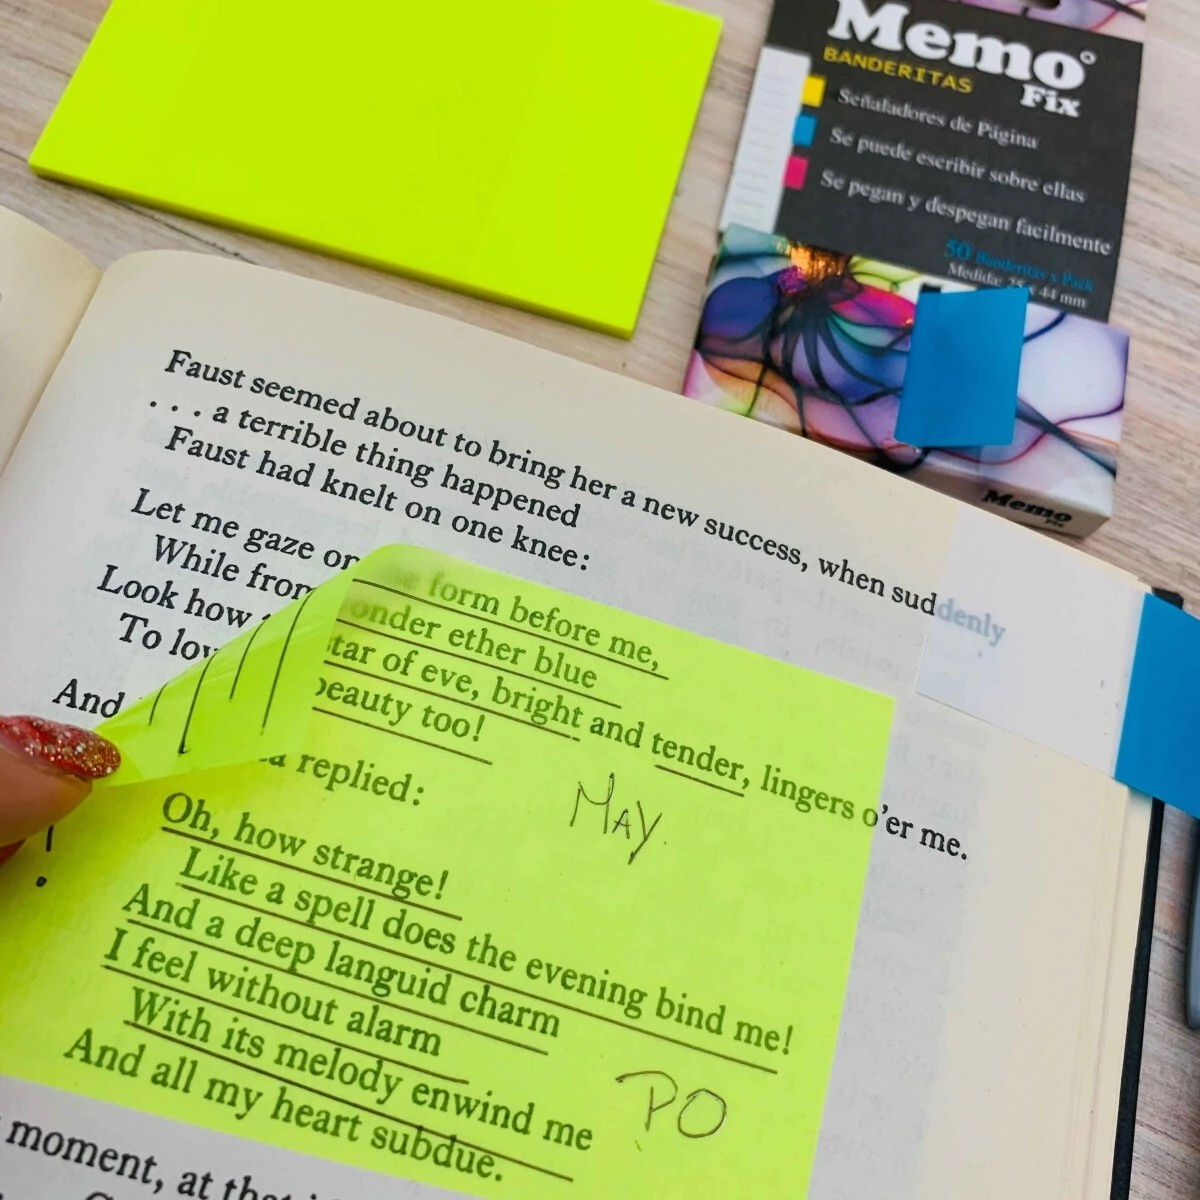 Memo
BANDERITAS
Fix
Señaladores de Página
Se puede escribir sobre ellas
Se pegan y despegan facilmente
50 Banderitas x Pack
Medida: 44 mm
Memo
Fix
Faust seemed about to bring her a new success, when suddenly
. . . a terrible thing happened
Faust had knelt on one knee:
Let me gaze on form before me,
While from yonder ether blue
Look how star of eve, bright and tender, lingers o'er me.
To beauty too!
And replied:
MAY
Oh, how strange!
Like a spell does the evening bind me!
And a deep languid charm
I feel without alarm
With its melody enwind me
PO
And all my heart subdue.
moment, at that